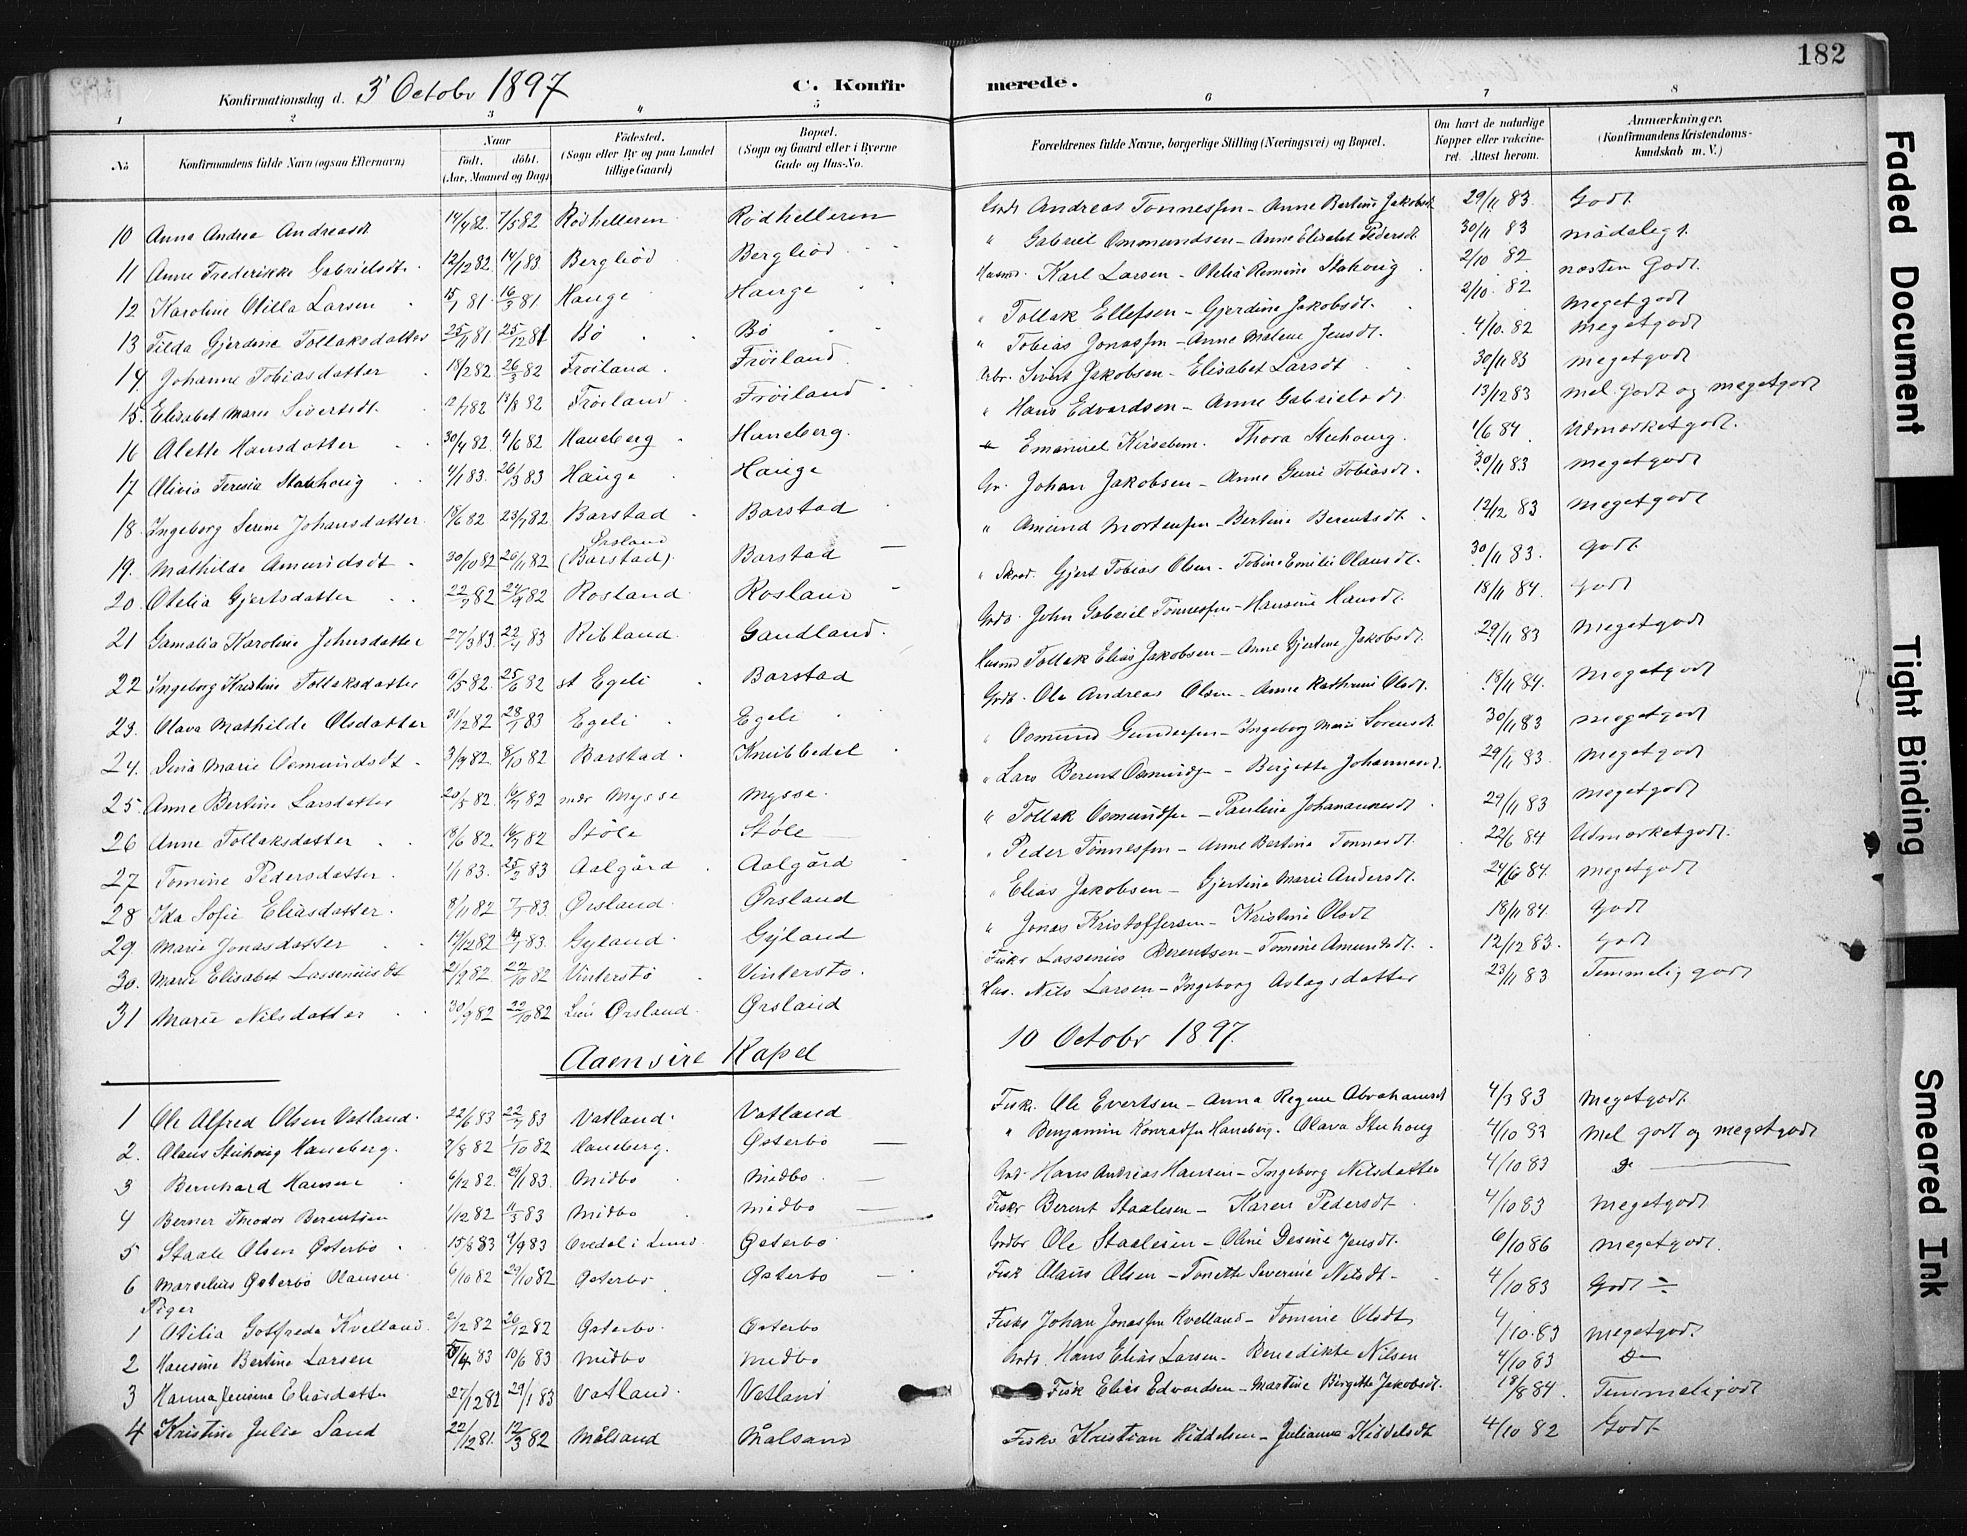 182
Konfirmationsdag d. 3' Octobr 1897 C. Konfir merede.
1 2 3 4 5 6 7 8
No Konfirmandens fulde Navn (ogsaa Efternavn) Naar født, døbt. (Aar, Maaned og Dag) Fødested. (Sogn eller By og paa Landet tillige Gaard) Bopæl. (Sogn og Gaard eller i Byerne Gade og Hus-No. Forældrenes fulde Navne, borgerlige Stilling (Næringsvei) og Bopæl. Om havt de naturlige Kopper eller vakcineret. Attest herom. Anmærkninger. (Konfirmandens Kristendomskundskab m. V.)
10 Anna Andrea Andreasdt 14/4 82. 7/5 82 Rødhelleren Rødhelleren Andreas Tønnessen - Anne Bertine Jakobsdt 29/11 83. Godt.
11 Anne Frederikke Gabrielsdt. 12/12 82. 14/1 83 Bergliød Bergliød " Gabriel Ommundsen - Anne Elisabet Pedersdt. 30/11 83 maadelegt.
12 Karoline Otilla Larsen 15/1 81. 16/3 81 Hauge Hauge Husmd. Karl Larsen - Otelia Romine Stuhoug 2/10 82 næsten Godt.
13 Tilda Gjerdine Tollaksdatter 25/11 81 25/12 81 Bø Bø " Tollak Ellefsen - Gjerdine Jakobsdt. 2/10. 82 Megetgodt
14. Johanne Tobiasdatter 18/2 82 26/3 82 Frøiland. Frøiland. " Tobias Jonassen - Anne Malene Jensdt. 4/10. 82 Megetgodt
15. Elisabet Marie Sivertsdt 12/7 82 13/8 82 Frøiland. Frøiland Sivert Jakobsen - Elisabet Larsdt 30/11 83 Megetgodt
16 Alette Hansdatter 30/4 82. 4/6 82 Haneberg Haneberg. " Hans Edvardsen - Anne Gabrielsdt 13/12 83 mel. godt og megetgodt
17 Olivia Teresia Stuhoug 4/1 83. 26/3 83 Hauge Hauge Emanuel Kirsebom. Thora Stuhoug. 1/6 84 Udmærketgodt.
18. Ingeborg Serine Johansdatter. 18/6 82 23/7 82 Barstad Barstad Gr. Johan Jakobsen - Anne Guri Tobiasdt. 30/11 83 Megetgodt
19. Mathilde Amundsdt. 30/10 82 26/11 82 Ørsland (Barstad). Barstad " Amund Mortensen - Bertine Berentsdt. 12/12 83 Megetgodt
20. Otelia Gjertsdatter 22/7 82 24/9 82 Rosland Rosland " Skræd. Gjert Tobias Olsen - Tobine Emilie Olausdt. 30/11 83. Godt
21 Gamalia Karoline Johnsdatter 27/3 83 22/4 83 Ribland. Gandland. Grdb. John Gabriel Tønnessen - Hansine Hansdt. 18/11 84. Godt
22 Ingeborg Kristine Tollaksdatter 6/5 82. 25/6 82 st Egeli Barstad Husmd Tollak Elias Jakobsen - Anne Gjertine Jakobsdt. 29/11 83 Megetgodt
23. Olava Mathilde Olsdatter 31/12 82 28/1 83 Egeli Egeli Grdb. Ole Andreas Olsen - Anne Kathrine Olsdt. 18/11 84. Megetgodt
24. Lina Marie Osmundsdt. 3/9 82. 8/10 82 Barstad. Knibbedal Osmund Gundersen - Ingeborg Marie Sørensdt 30/11 83 Megetgodt
25. Anne Bertine Larsdatter 20/5 82. 16/7 82 Mysse Mysse. " Lars Berent Osmunds - Birgette Johannesdt. 29/11 83. Megetgodt
26 Anne Tollaksdatter 18/6 82. 16/7 82 Støle Støle " Tollak Osmundsen - Pauline Johannesdt. 29/11 83 Megetgodt
27 Tomine Pedersdatter. 1/1 83. 25/2 83 Aalgård Aalgård " Peder Tønnessen - Anne Bertine Tønnesdt. 22/6 84 Udmærketgodt.
28 Ida Sofie Eliasdatter. 8/11 82 7/1 83. Ørsland. Ørsland " Elias Jakobsen - Gjertine Marie Andersdt. 24/6 84. Megetgodt
29. Marie Jonasdatter 17/12 82 14/1 83. Gyland. Gyland " Jonas Kristoffersen - Kristine Olsdt 18/11 84. Godt
30. Marie Elisabet Lasseniusdt 2/9 82. 22/10 82 Vinterstø Vinterstø. Fiskr Lassenius Berentsen - Tomine Amundsdt. 12/12 83. Godt
31 Marie Nilsdatter 30/9 82 22/10 82 Ørsland. Ørsland Hus. Nils Larsen - Ingeborg Aslagsdatter 23/11 83 Temmelig godt
Aaensire Kapel 10 Octobr 1897.
1 Ole Alfred Olsen Vatland. 22/6 83 22/7 83 Vatland. Vatland Fiskr. Ole Evertsen - Anna Regine Abrahamsdt 4/3 83 Megetgodt.
2. Olaus Stuhoug Haneberg. 7/8 82 1/10 82 Haneberg. Østerbø " Benjamin Konradsen Haneberg. Olava Stuhoug 4/10 83 Mel godt og megetgodt
3 Bernhard Hansen 6/12 82. 29/1 83. Midbø Midbø Hans Andreas Hansen - Ingeborg Nilsdatter 4/10 83 Do
4 Berner Theodor Berentsen 1/12 82 11/3 83 Midbø Midbø Fiskr Berent Staalesen - Karen Pedersdt 4/10 83 Megetgodt
5 Staale Olsen Østerbø. 15/8 83 9/9 83 Ovedal i Lund. Østerbø Grdbr Ole Staalesen - Oline Desine Jensdt. 6/10 86 Megetgodt.
6 Marselius Østerbø Olausen. 6/10 82 29/10 82 Østerbø Østerbø Fisk Olaus Olsen - Tonette Severine Nilsdt 4/10 83 Godt ÷
Piger
1 Otilia Gotfreda Kvelland. 2/12 82 26/12 82 Østerbø. Østerbø Fiskr Johan Jonassen Kvelland - Tomine Olsdt 4/10. 83 Megetgodt.
2 Hansine Bertine Larsen 15/4 83 10/6 83 Midbø Midbø Grdb. Hans Elias Larsen - Benedikte Nilsen 4/10 83 Do
3 Hanna Jensine Eliasdatter 27/12 82 29/1 83 Vatland. Vatland Fisk Elias Edvardsen - Martine Birgitte Jakobsdt. 18/8 84. Temmeligodt
4 Kristine Julie Sand 22/12 81. 12/3 82 Målsand Målsand Fiskr Kristian Kiddelsen - Julianne Kiddelsdt 4/10 82 Godt.
Faded Document
Tight Binding
Smeared Ink